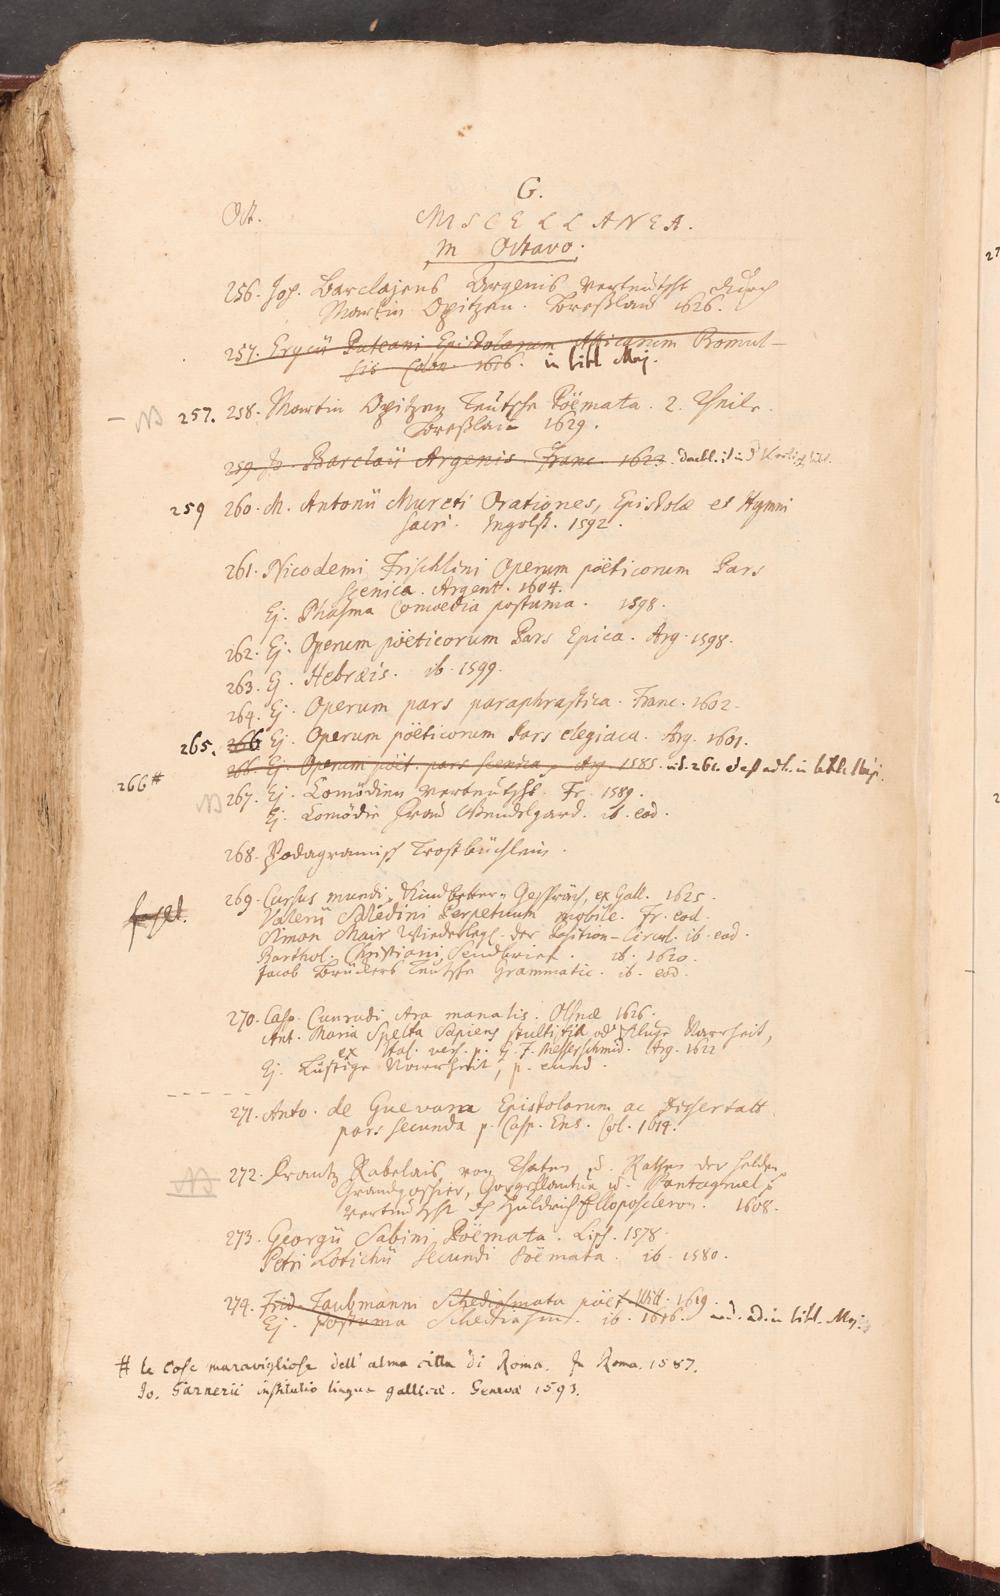 G.
Oct. MISCELLANEA.
In Octavo.
256. Joh. Barclajens Argenis verteutscht durch
Martin Opitzen. Breßlau 1626.
257. Erycii Puteani Epistolarum Atticarum Promul-
sis Colon. 1616. in bibl. Maj.
NB 257. 258. Martin Opitzen Teutsche Poëmata. 2. Theile.
Breßlau 1629.
259. Jo. Barclaii Argenis. Franc. 1623.
259 260. M. Antonii Mureti Orationes, Epistolæ et Hymni
sacri. Ingolst. 1592.
261. Nicodemi Frischlini Operum poëticorum Pars
scenica. Argent. 1604.
Ej. Phasma Comoedia postuma. 1598.
262. Ej. Operum poëticorum Pars Epica. Arg. 1598.
263. Ej. Hebræis. ib. 1599.
264. Ej. Operum pars paraphrastica. Franc. 1602.
265. 266 Ej. Operum poëticorum Pars elegiaca. Arg. 1601.
266. Ej. Operum poët. pars scenica, Arg. 1585. vid. 261. in bibl. Maj.
266#
NB 267. Ej. Comödien verteutscht. Fr. 1589.
Ej. Comödie Fraw Wendelgard. ib. eod.
268. Podagramisch Trostbüchlein.
269. Cursus mundi, Kindbetter-Gespräch, ex Gall. 1625.
Valerii Saledini Perpetuum mobile. Fr. eod.
Simon Mair Wiederlegl. der Position-Circul. ib. eod.
Barthol. Christiani Sendbrief. ib. 1620.
Jacob Brückers Teutsche Grammatic. ib. eod.
270. Casp. Cunradi Ara manalis. Olsnæ 1626.
Ant. Maria Spelta Sapiens stultitia od. Kluge Narrheit,
ex Ital. vers. p. G. F. Messerschmid. Arg. 1622
Ej. Lustige Narrheit, p. eund.
271. Anto. de Guevara Epistolarum ac Dissertatt.
pars secunda p. Casp. Ens. Col. 1614.
NB 272. Frantz Rabelais von Thaten u. Rathen der Helden
Grandgosier, Gorgellantua u. Pantagruel,
verteutscht dh Huldrich Elloposcleron. 1608.
273. Georgii Sabini Poëmata. Lips. 1578.
Petri Lotichii Secundi Poëmata. ib. 1580.
274. Frid. Taubmanni Schediasmata poët. Witt. 1619.
Ej. postuma Schediasm. ib. 1616. ad. in bibl. Maj.
# le cose maravigliose dell' alma citta di Roma. In Roma. 1587.
Jo. Garnerii institutio linguæ gallicæ. Genevæ 1593.